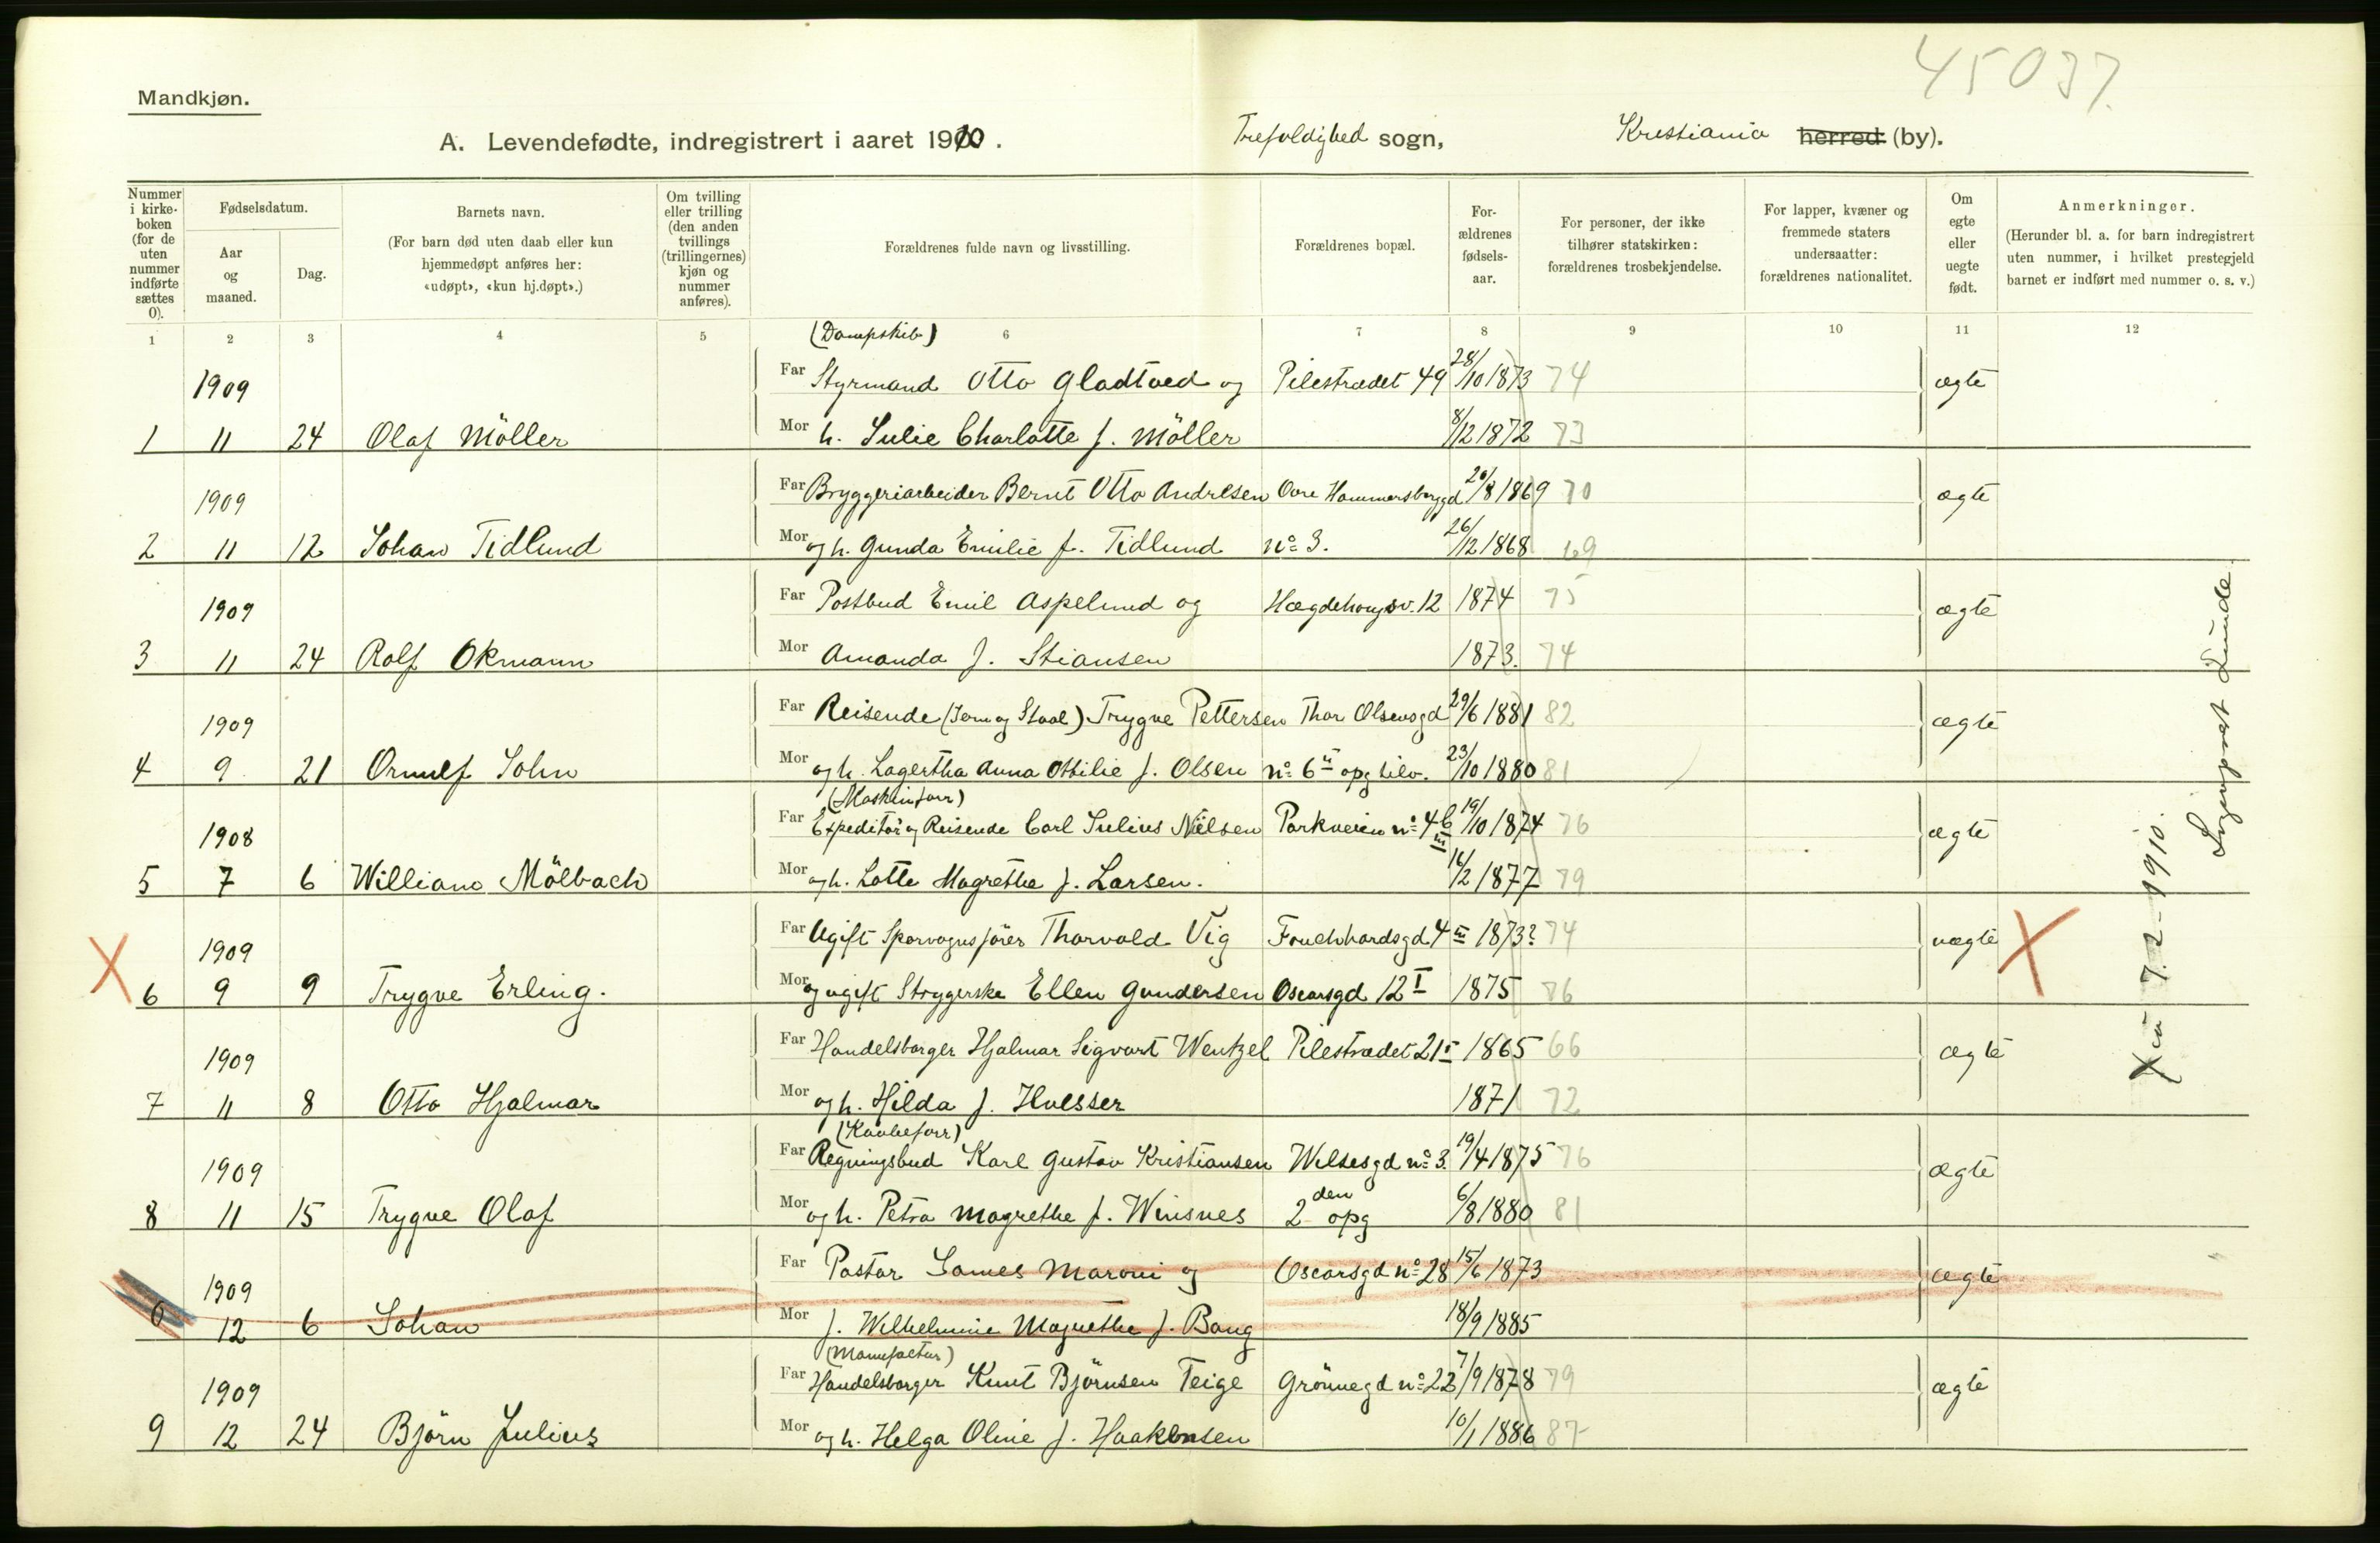 45037.
Mandkjøn.
A. Levendefødte, indregistrert i aaret 1910. Trefoldighed sogn, Kristiania herred (by).
Nummer i kirke-boken (for de uten nummer indførte sættes 0).
Fødselsdatum.
Aar og maaned.
Dag.
Barnets navn.
(For barn død uten daab eller kun hjemmedøpt anføres her: «udøpt», «kun hj.døpt».)
Om tvilling eller trilling (den anden tvillings (trillingernes) kjøn og nummer anføres).
Forældrenes fulde navn og livsstilling.
Forældrenes bopæl.
For-ældrenes fødsels-aar.
For personer, der ikke tilhører statskirken: forældrenes trosbekjendelse.
For lapper, kvæner og fremmede staters undersaatter: forældrenes nationalitet.
Om egte eller uegte født.
Anmerkninger.
(Herunder bl. a. for barn indregistrert uten nummer, i hvilket prestegjeld barnet er indført med nummer o. s. v.)
1 2 3 4 5 6 7 8 9 10 11 12
(Dampskib)
1909 Far Styrmand Otto Gladtved og Pilestrædet 49 28/10 1873 74 ægte
1 11 24 Olaf Möller Mor h. Julie Charlotte f. Möller 8/12 1872 73
1909 Far Bryggeriarbeider Bernt Otto Andresen Övre Hammersborggd 20/8 1869 70 ægte
2 11 12 Johan Tidlund Mor og h. Gunda Emilie f. Tidlund No 3. 26/12 1868 69
1909 Far Postbud Emil Aspelund og Hægdehougsv. 12 1874 75 ægte
3 11 24 Rolf Okmann Mor Amanda f. Stiansen 1873. 74
1909 Far Reisende (Jern og Staal) Trygve Pettersen Thor Olsensgd 29/6 1881 82 ægte
4 9 21 Ornulf John Mor og h. Lagertha Anna Ottilie f. Olsen No 6 II opg tilv. 23/10 1880 81
(Maskinforr)
1908 Far Expeditör og Reisende Carl Julius Nielsen Parkveien No 4b III 19/10 1874 76 ægte
5 7 6 William Mölbach Mor og h. Lotte Magrethe f. Larsen. 16/2 1877 79
1909 Far Ugift Sporvognsförer Thorvald Vig Fouchhardsgd 4 III 1873? 74 uægte
6 9 9 Trygve Erling. Mor og ugift Strygerske Ellen Gundersen Oscarsgd 12 I 1875 76
1909 Far Handelsborger Hjalmar Sigvart Wentzel Pilestrædet 21 I 1865 66 ægte
7 11 8 Otto Hjalmar Mor og h. Hilda f. Hvesser 1871 72
1909 Far Regningsbud Karl Gustav Kristiansen Welsesgd No 3. 19/4 1875 76 ægte
8 11 15 Trygve Olaf Mor og h. Petra Magrethe f. Winsnes 2 den opg 6/8 1880 81
1909 Far Pastor James Maroni og Oscarsgd No 28 15/6 1873 ægte
0 12 6 Johan Mor f. Wilhelmine Magnethe f. Bang 18/9 1885
(Manufactur)
1909 Far Handelsborger Knut Björnsen Teige Grönnegd No 22 7/9 1878 79 ægte
9 12 24 Björn Julius Mor og h. Helga Oline f. Haakensen 10/1 1886 87
X
X
7-2-1910.
Lunde